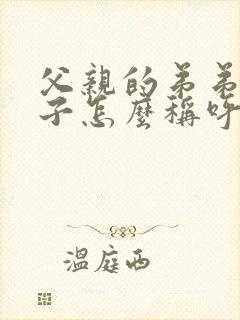 父親的弟弟
子怎麼稱呼
溫庭西